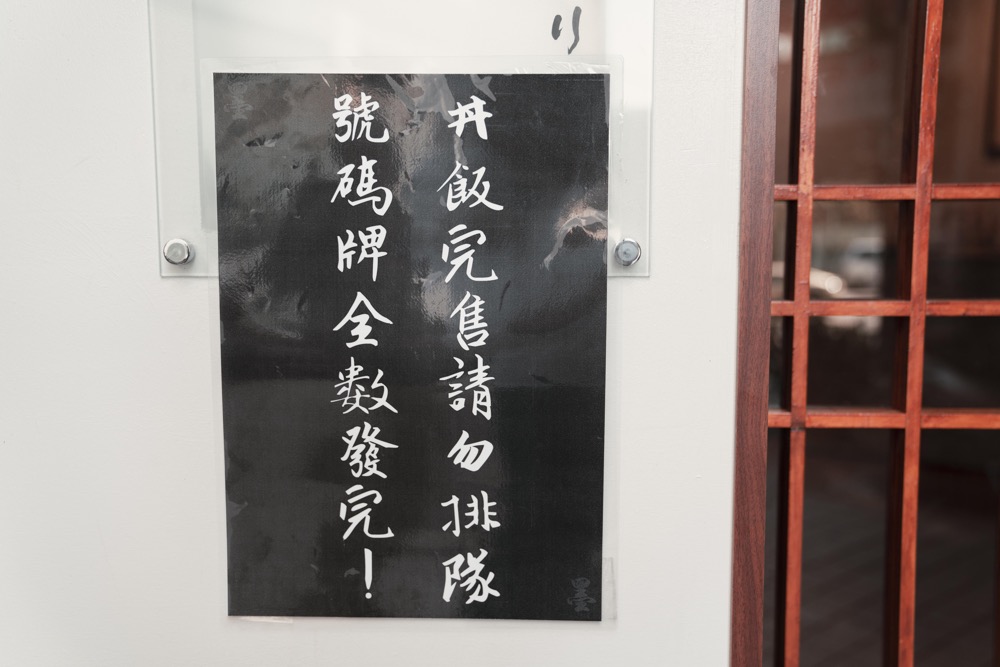 り
丼飯完售請勿排隊
號碼牌全數發完！
墨